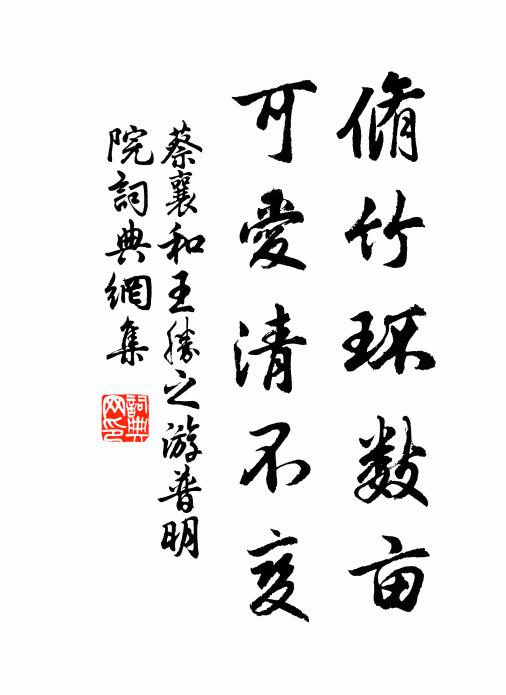 脩竹环数亩
可愛清不变
蔡襄和王勝之游普明
院詞典網集
詞典
网印